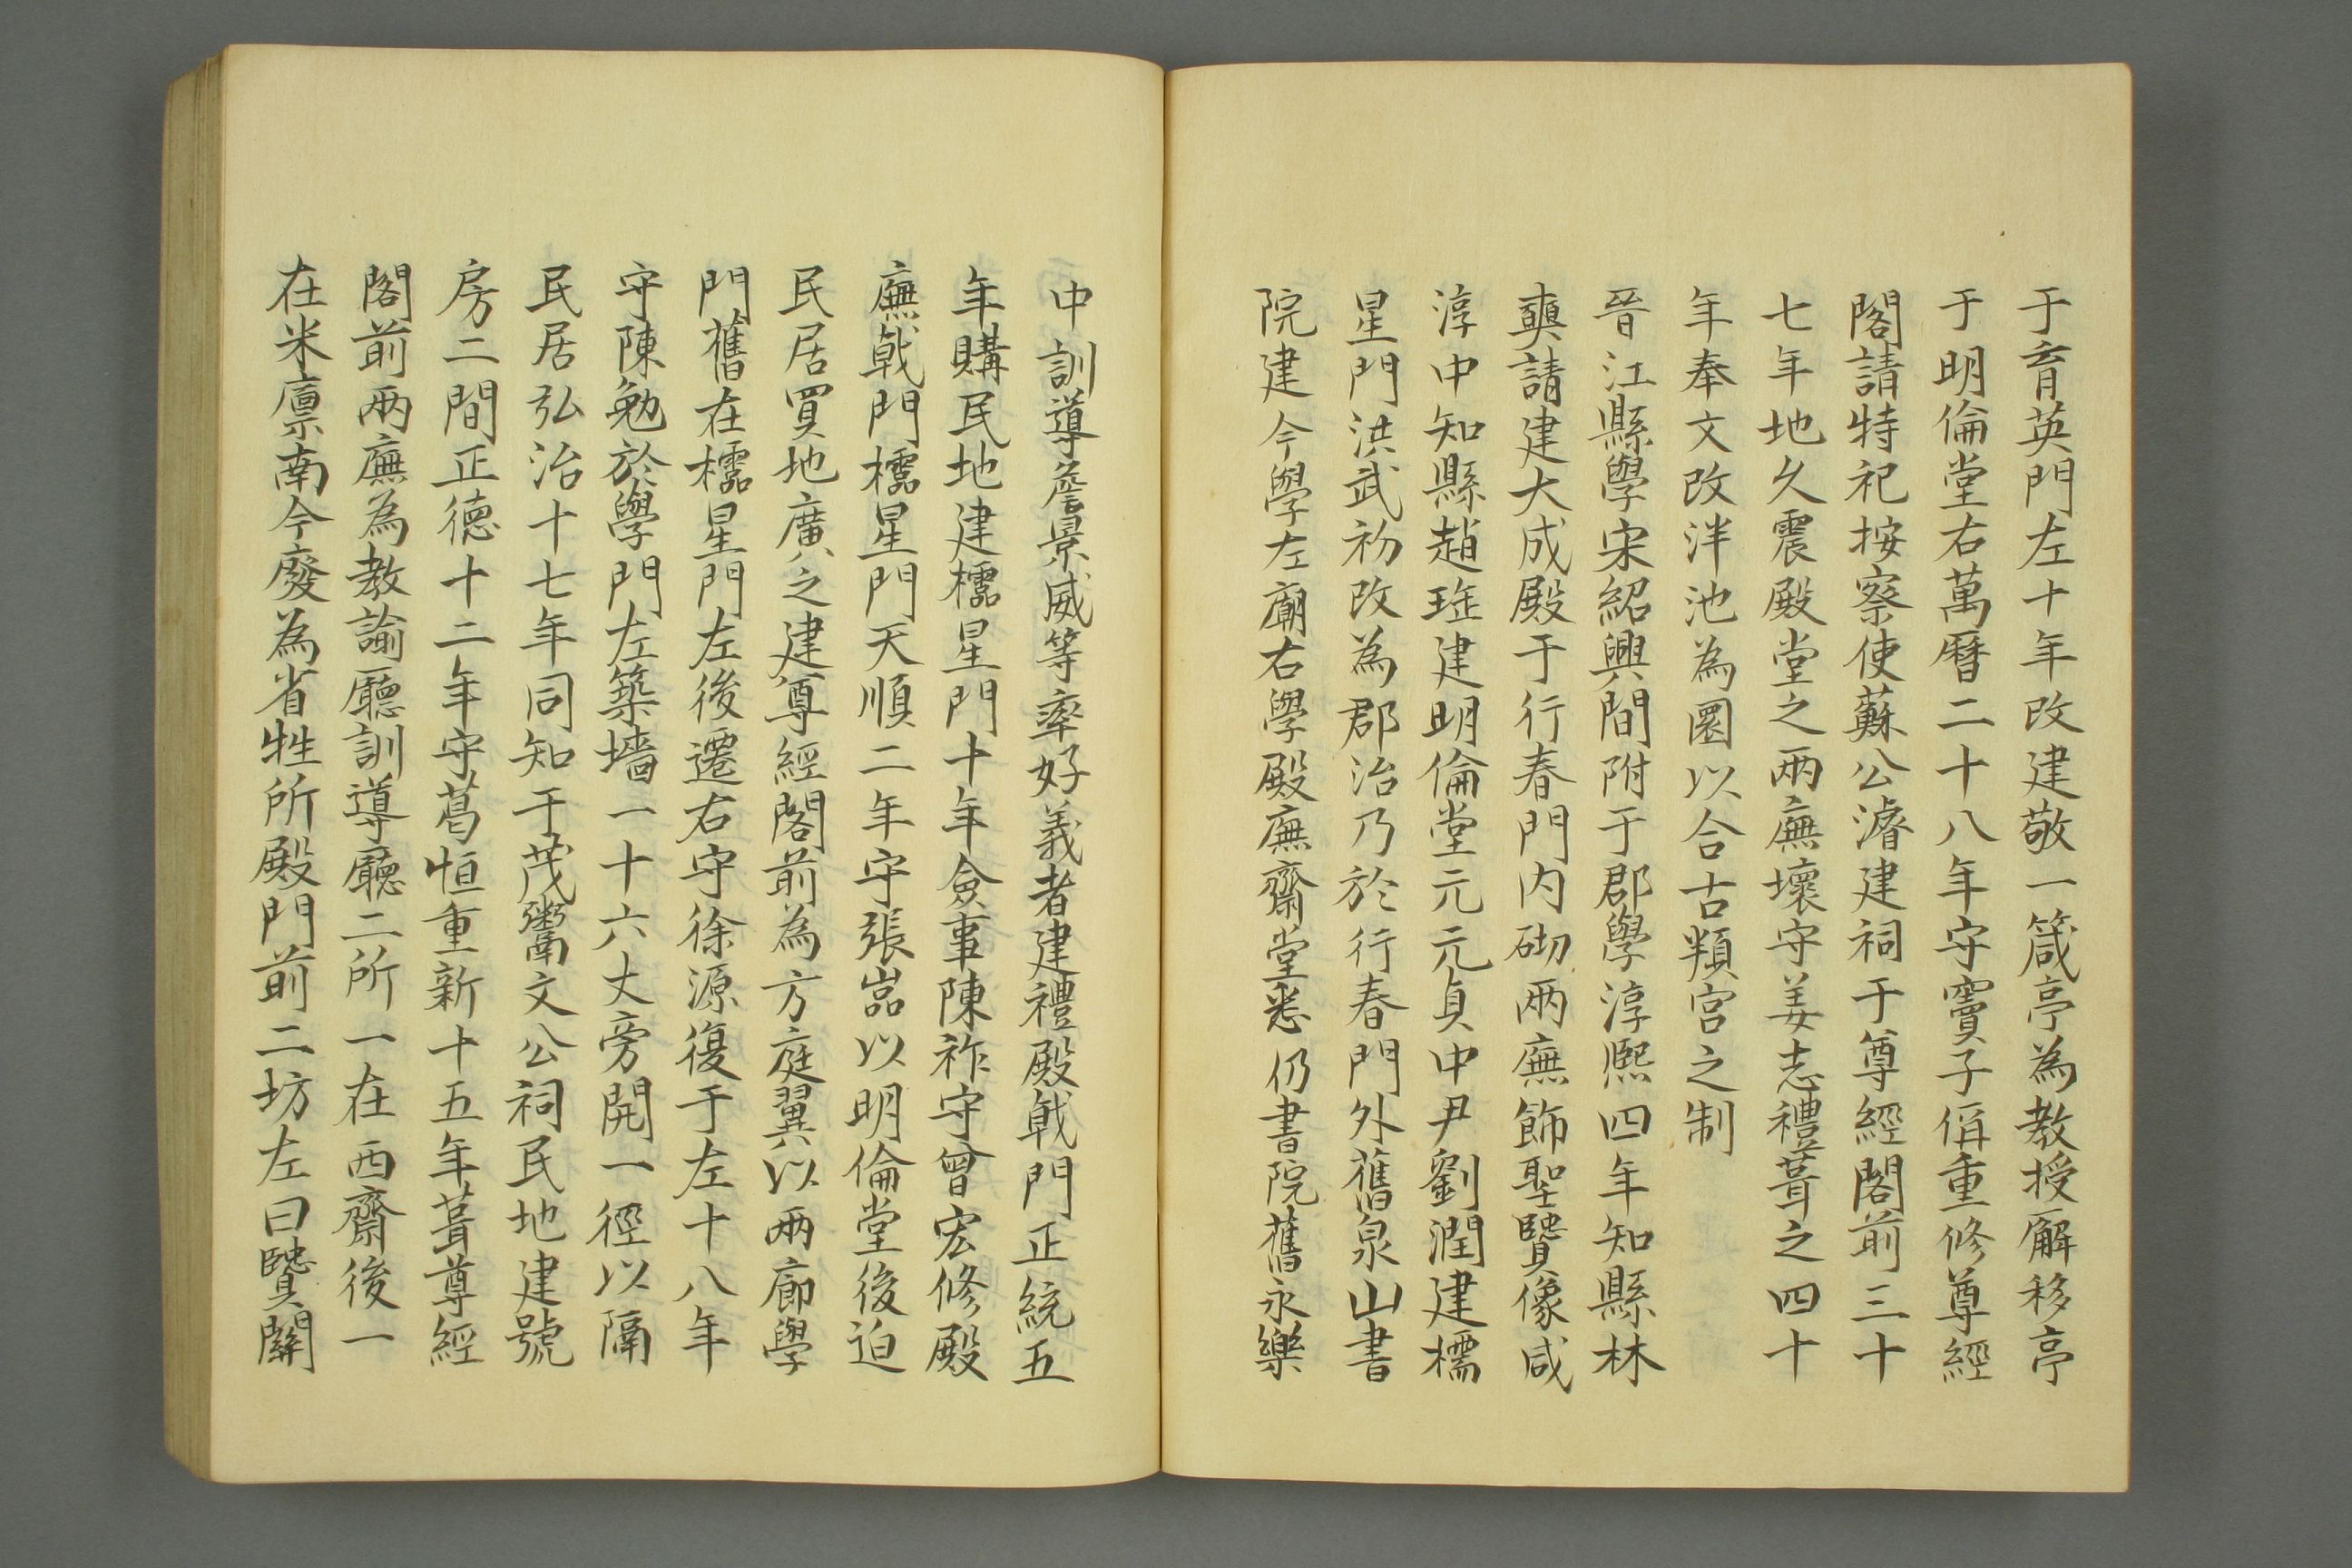 于育英門左十年改建敬一箴亭為教授廨移亭
于明倫堂右萬曆二十八年守竇子偁重修尊經
閣請特祀按察使蘇公濬建祠于尊經閣前三十
七年地久震殿堂之兩廡壞守姜志禮葺之四十
年奉文改泮池為圜以合古頖宮之制
晉江縣學宋紹興間附于郡學淳熙四年知縣林
奭請建大成殿于行春門內砌兩廡飾聖賢像咸
淳中知縣趙珤建明倫堂元元貞中尹劉潤建櫺
星門洪武初改為郡治乃於行春門外舊泉山書
院建今學左廟右學殿廡齋堂悉仍書院舊永樂
中訓導詹景威等率好義者建禮殿戟門正統五
年購民地建櫺星門十年僉事陳祚守曾宏修殿
廡戟門櫺星門天順二年守張嵓以明倫堂後迫
民居買地廣之建尊經閣前為方庭翼以兩廊學
門舊在櫺星門左後遷右守徐源復于左十八年
守陳勉於學門左築墻一十六丈旁開一徑以隔
民居弘治十七年同知于茂鬻文公祠民地建號
房二間正德十二年守葛恒重新十五年葺尊經
閣前兩廡為教諭廳訓導廳二所一在西齋後一
在米廪南今廢為省牲所殿門前二坊左曰賢關